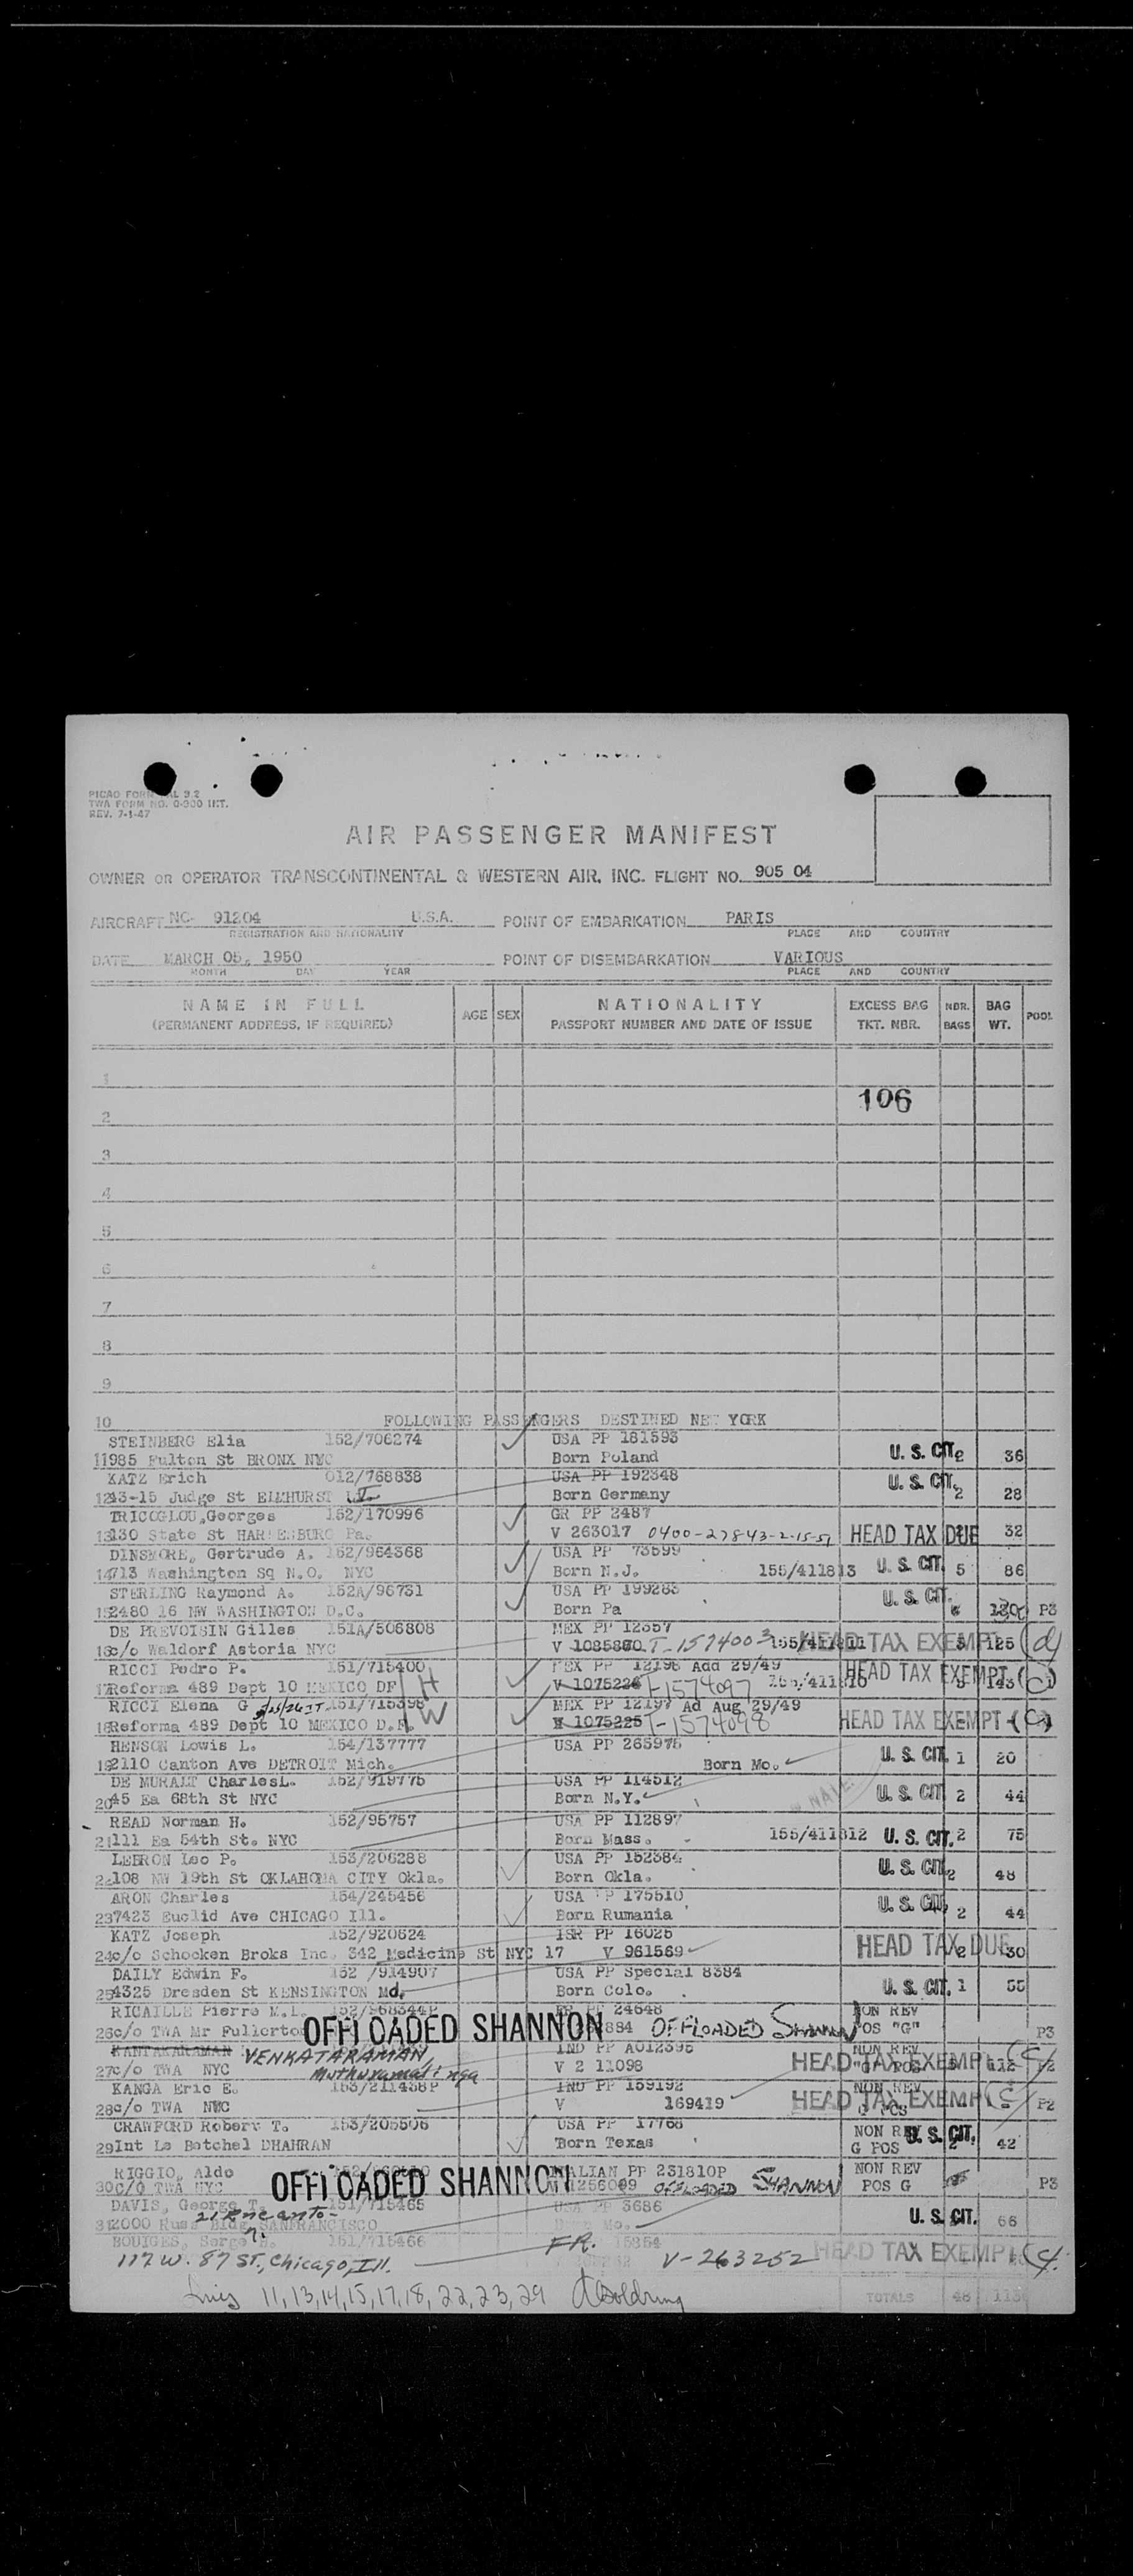 PICAO FORM AL 9.2
TWA FORM NO. 0-900 INT.
REV. 7-1-47
AIR PASSENGER MANIFEST
OWNER OR OPERATOR TRANSCONTINENTAL & WESTERN AIR, INC. FLIGHT NO. 905 04
AIRCRAFT NC- 91204 U.S.A. POINT OF EMBARKATION PARIS
REGISTRATION AND NATIONALITY PLACE AND COUNTRY
DATE MARCH 05, 1950 POINT OF DISEMBARKATION VARIOUS
MONTH DAY YEAR PLACE AND COUNTRY
NAME IN FULL AGE SEX NATIONALITY EXCESS BAG NBR. BAG POOL
(PERMANENT ADDRESS, IF REQUIRED) PASSPORT NUMBER AND DATE OF ISSUE TKT. NBR. BAGS WT.
1
2 106
3
4
5
6
7
8
9
10 FOLLOWING PASSENGERS DESTINED NEW YORK
STEINBERG Elia 152/706274 USA PP 181593
11 985 Fulton St BRONX NYC Born Poland U. S. CIT. 2 36
KATZ Erich 012/768838 USA PP 192348
12 43-15 Judge St ELMHURST L.I. Born Germany U. S. CIT. 2 28
TRICOGLOU, Georges 152/170996 GR PP 2487
13 130 State St Pa. V 263017 0400-27843-2-15-51 HEAD TAX DUE 32
DINSMORE, Gertrude A. 152/964368 USA PP 73599
14 713 Washington Sq N.O. NYC Born N.J. 155/411813 U. S. CIT. 5 86
STERLING Raymond A. 152A/96731 USA PP 199283
15 2480 16 NW WASHINGTON D.C. Born Pa U. S. CIT. P3
DE PREVOISIN Gilles 151A/506808 MEX PP 12357
16 c/o Waldorf Astoria NYC V T-1574003 155/411811 HEAD TAX EXEMPT 125 (d)
RICCI Pedro P. 151/715400 MEX PP 12196 Aug 29/49
17 Reforma 489 Dept 10 MEXICO DF H V 1075226 T-1574097 155/411810 HEAD TAX EXEMPT 143 (c)
RICCI Elena G 151/715398 MEX PP 12197 Ad Aug 29/49
18 Reforma 489 Dept 10 MEXICO D.F. W 1075225 T-1574098 HEAD TAX EXEMPT - (c)
HENSON Lowis L. 154/137777 USA PP 265975
19 2110 Canton Ave DETROIT Mich. Born Mo. U. S. CIT. 1 20
DE MURALT CharlesL. 152/919775 USA PP 114512
20 45 Ea 68th St NYC Born N.Y. U. S. CIT 2 44
READ Norman H. 152/95757 USA PP 112897
21 111 Ea 54th St. NYC Born Mass. 155/411812 U. S. CIT. 2 75
LEBRON Leo P. 153/206288 USA PP 152384
22 108 NW 19th St OKLAHOMA CITY Okla. Born Okla. U. S. CIT. 2 48
ARON Charles 154/245456 USA PP 175510
23 7423 Euclid Ave CHICAGO Ill. Born Rumania U. S. CIT. 2 44
KATZ Joseph 152/920624 ISR PP 16025
24 c/o Schocken Broks Inc. 342 Medicine St NYC 17 V 961569 HEAD TAX DUE 2 30
DAILY Edwin F. 152 /914907 USA PP Special 8384
25 4325 Dresden St KENSINGTON Md. Born Colo. U. S. CIT. 1 55
RICAILLE Pierre M.L. 152/968344P FR PP 24648 NON REV
26 c/o TWA Mr Fullerto OFFLOADED SHANNON 884 OFFLOADED SHANNON POS "G" P3
KANTAKARAMAN VENKATARAMAN IND PP A012395 NON REV
27 c/o TWA NYC Muthuramalinga V 2 11098 HEAD TAX EXEMPT "G" POS 112 P2
KANGA Eric E. 153/211438P IND PP 159192 NON REV
28 c/o TWA NYC V 169419 HEAD TAX EXEMPT G POS P2
CRAWFORD Robert T. 153/205506 USA PP 17768 NON REV U. S. CIT.
29 Int Le Betchel DHAHRAN Born Texas G POS 2 42
RIGGIO, Aldo ITALIAN PP 231810P NON REV
30 c/o TWA NYC OFFLOADED SHANNON 1256099 OFFLOADED SHANNON POS G P3
DAVIS, George T. 151/715465 USA PP 3686
31 2000 Russ Bldg SANFRANCISCO 21 encanto- Born Mo. U. S. CIT. 66
BOUIGES, Serge 151/715466 FR. 15854
117 W. 87 ST., Chicago, Ill. V-263252 HEAD TAX EXEMPT (c)
Lines 11,13,14,15,17,18,22,23,29
TOTALS 48